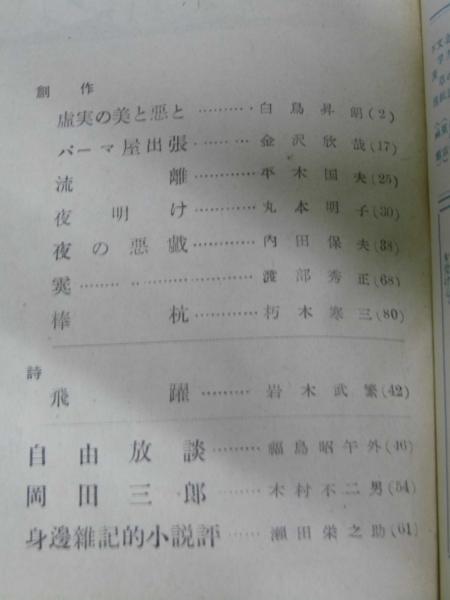 創作
虚実の美と悪と………白鳥昇昭(2)
パーマ屋出張………金沢欣哉(17)
流離…………平木国夫(25)
夜明け…………丸本明子(30)
夜の悪戯…………内田保夫(38)
…………渡部秀正(68)
棒杭…………朽木寒三(80)
詩
飛躍………岩木武繁(42)
自由放談………福島昭午外(46)
岡田三郎………木村不二男(54)
身邊雜記的小説評……瀬田栄之助(61)